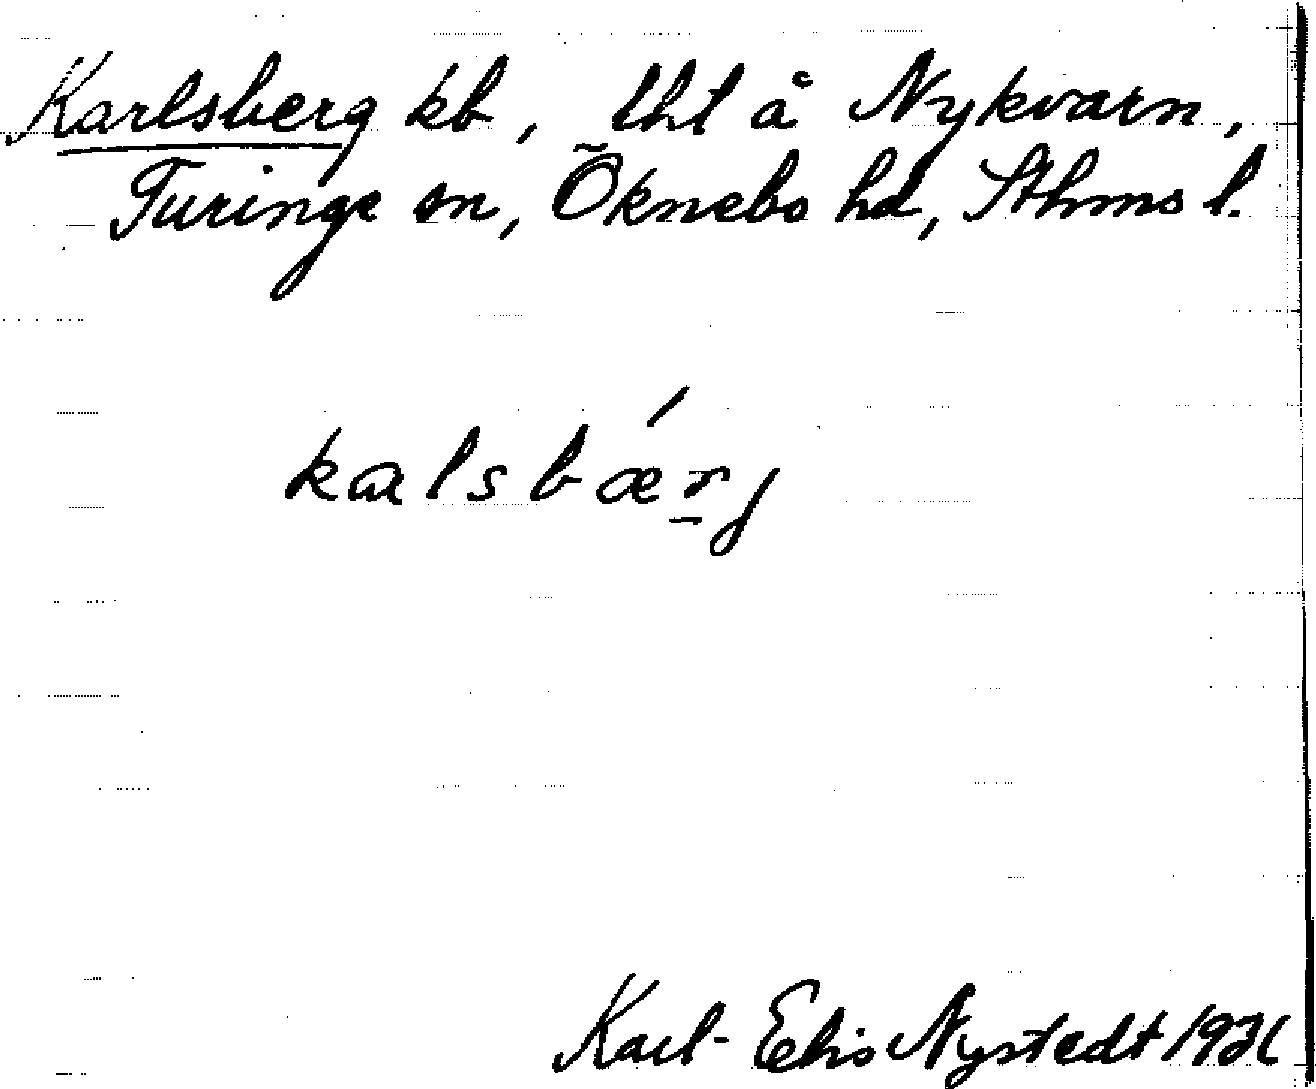 Karlsberg kb, lht å Nykvarn,
Turinge sn, Öknebo hd, Sthms l.
kalsbæ´rj
Karl-Elis Nystedt 1936